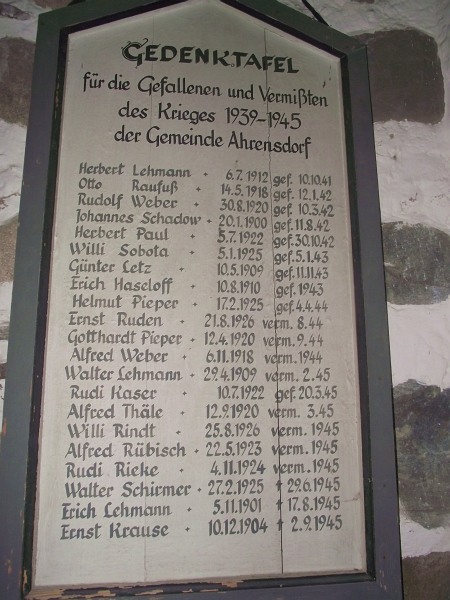 GEDENKTAFEL
für die Gefallenen und Vermißten
des Krieges 1939-1945
der Gemeinde Ahrensdorf
Herbert Lehmann * 6.7.1912 gef. 10.10.41
Otto Raufuß * 14.5.1918 gef. 12.1.42
Rudolf Weber * 30.8.1920 gef. 10.3.42
Johannes Schadow * 20.1.1900 gef. 11.8.42
Herbert Paul * 5.7.1922 gef. 30.10.42
Willi Sobota * 5.1.1925 gef. 5.1.43
Günter Letz * 10.5.1909 gef. 11.11.43
Erich Haseloff * 10.8.1910 gef. 1943
Helmut Pieper * 17.2.1925 gef. 4.4.44
Ernst Ruden * 21.8.1926 verm. 8.44
Gotthardt Pieper * 12.4.1920 verm. 9.44
Alfred Weber * 6.11.1918 verm. 1944
Walter Lehmann * 29.4.1909 verm. 2.45
Rudi Kaser * 10.7.1922 gef. 20.3.45
Alfred Thäle * 12.9.1920 verm. 3.45
Willi Rindt * 25.8.1926 verm. 1945
Alfred Rübisch * 22.5.1923 verm. 1945
Rudi Rieke * 4.11.1924 verm. 1945
Walter Schirmer * 27.2.1925 † 29.6.1945
Erich Lehmann * 5.11.1901 † 17.8.1945
Ernst Krause * 10.12.1904 † 2.9.1945